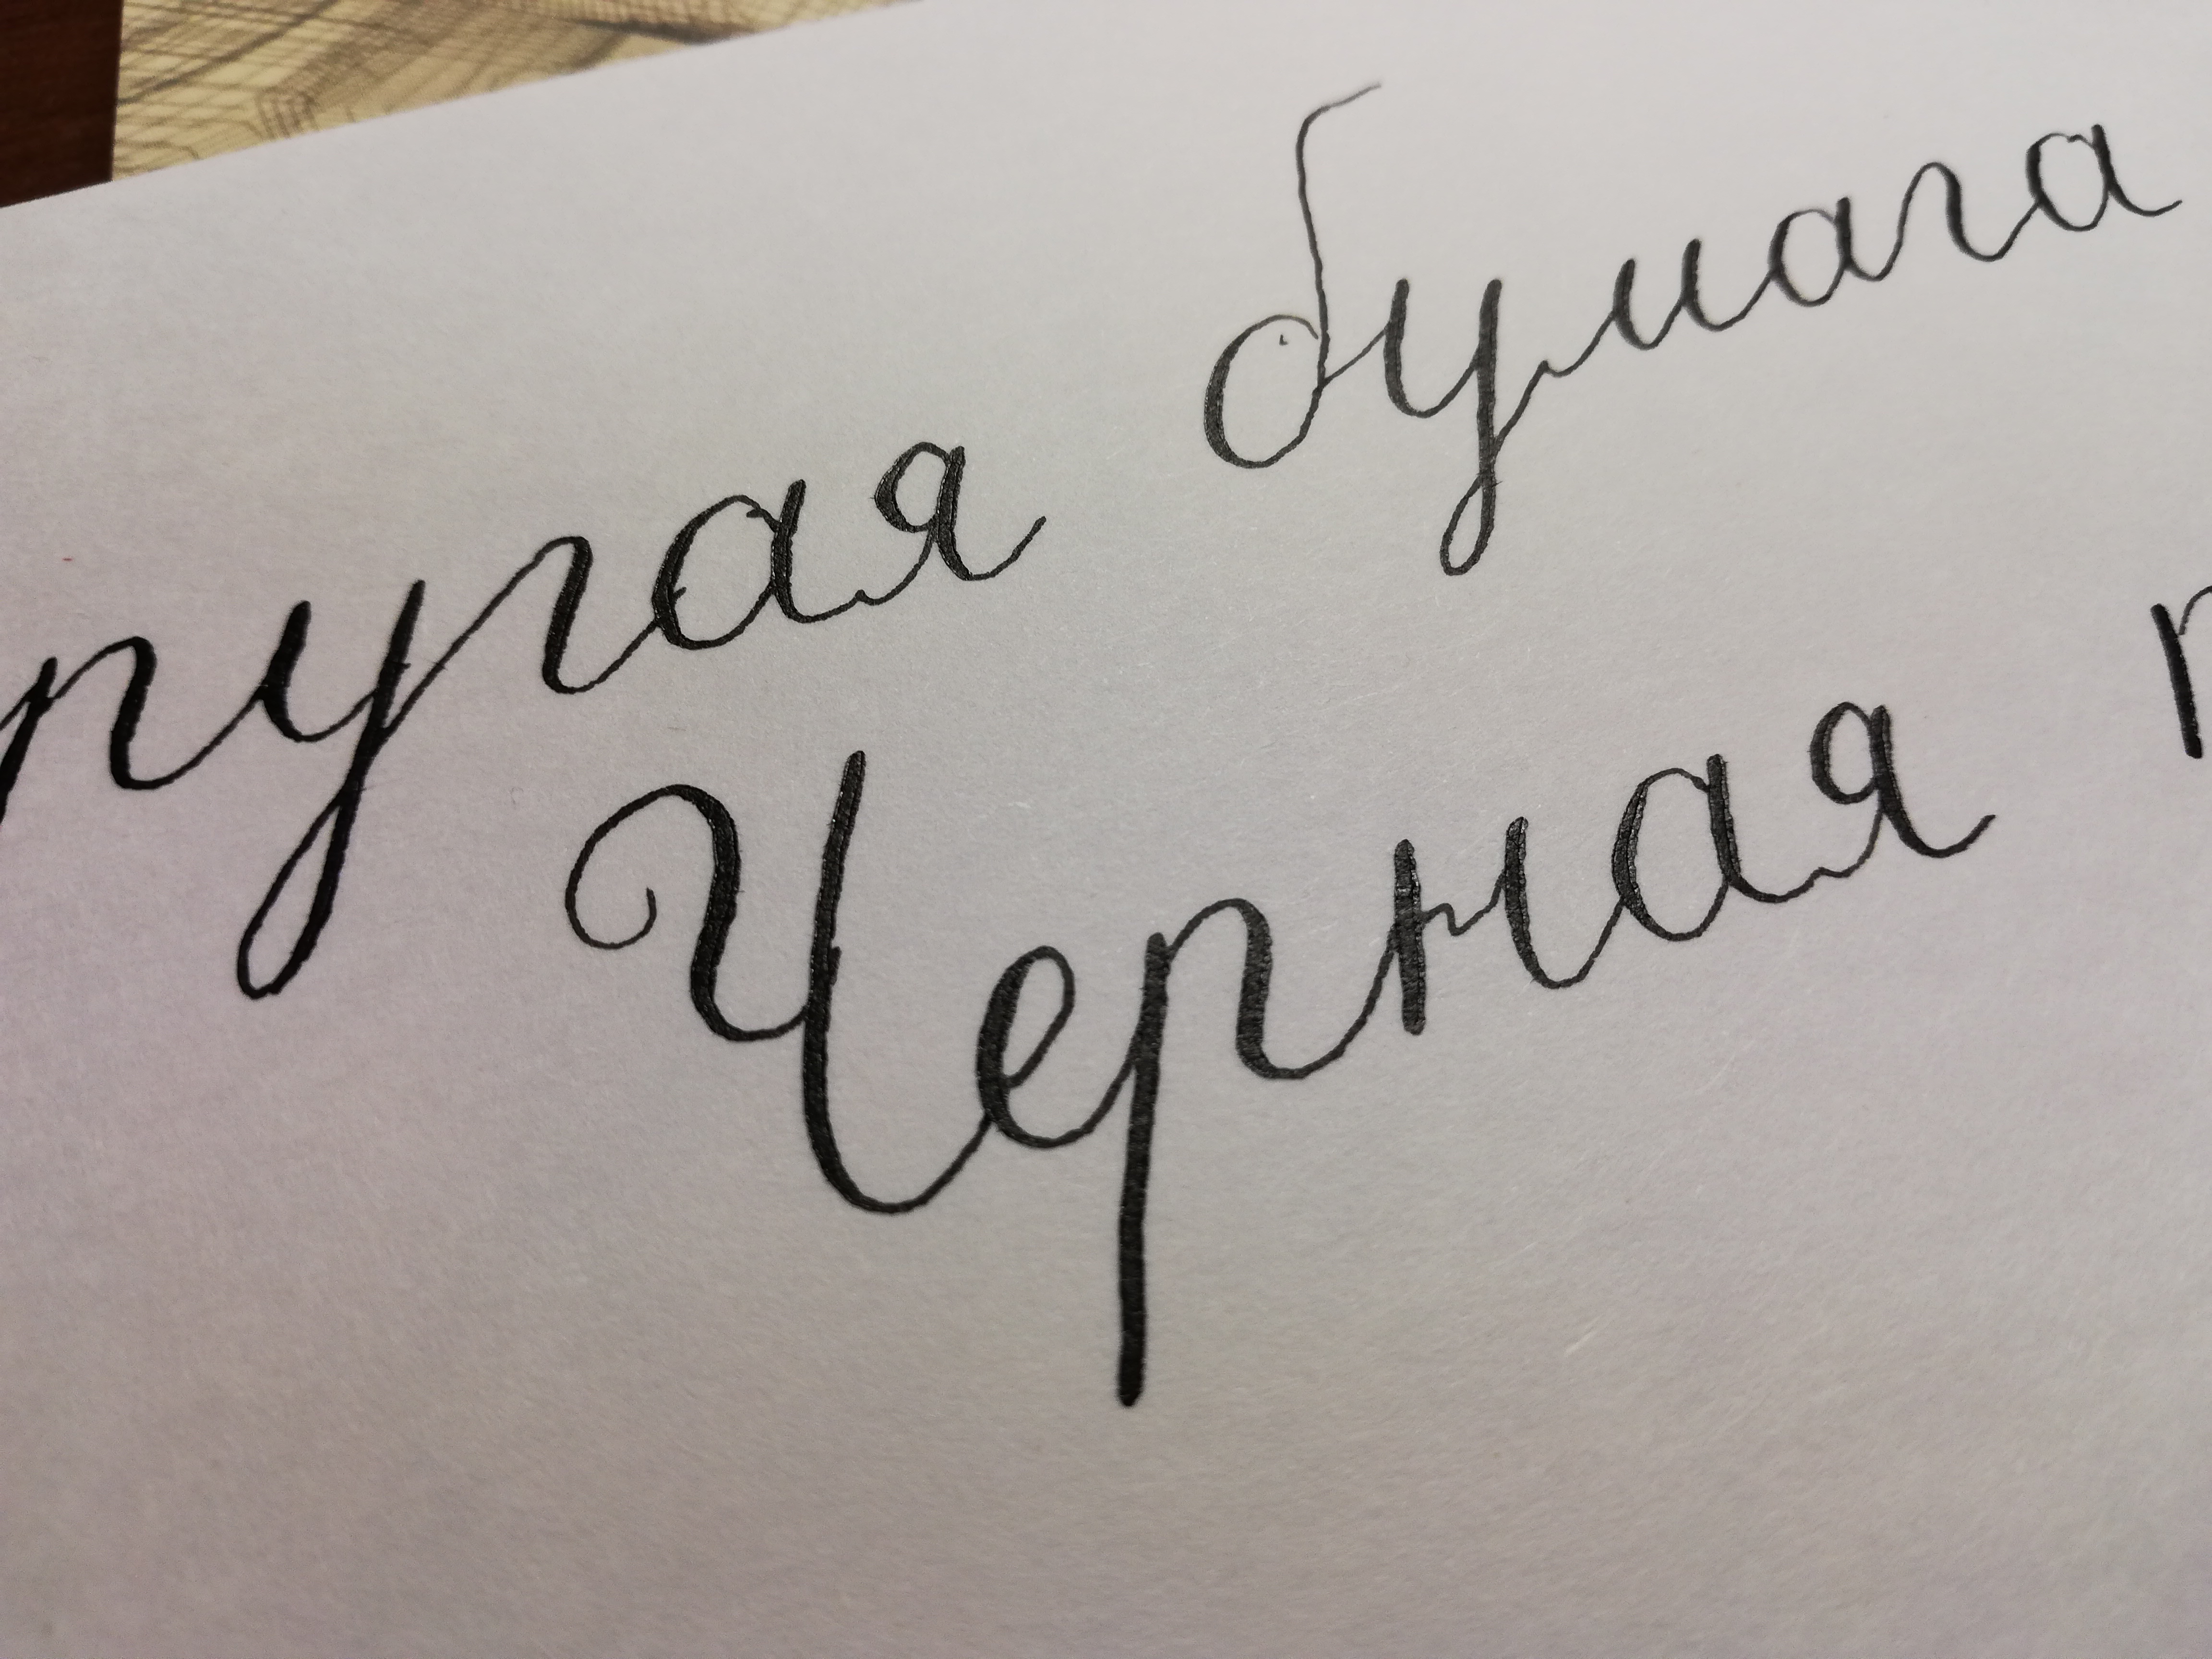 ругая бумага
Черная